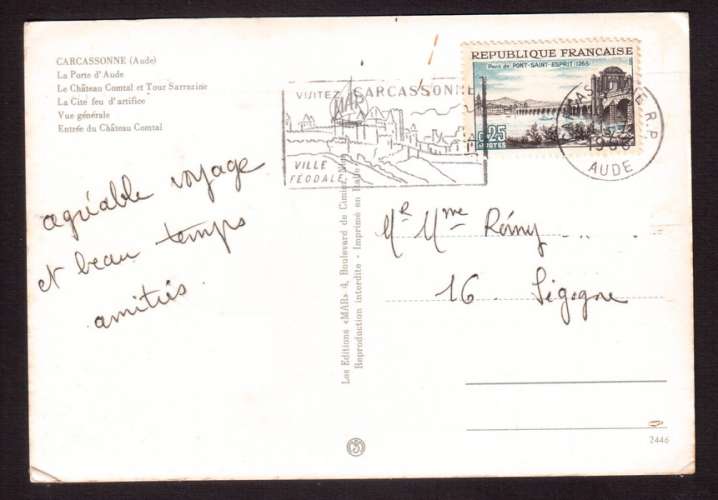 CARCASSONNE (Aude)
La Porte d'Aude
Le Château Comtal et Tour Sarrazine
La Cité feu d'artifice
Vue générale
Entrée du Château Comtal
agréable voyage
et beau temps
amitiés.
VISITEZ CARCASSONNE
VILLE
FÉODALE
REPUBLIQUE FRANCAISE
Pont de PONT-SAINT-ESPRIT-1265
0,25
POSTES
R.P.
1966
AUDE
Mr Mme Rémy
16 Ségogne
Les Editions «MAR» 4, Boulevard de Cimiez,
Reproduction interdite - Imprimé en
2446